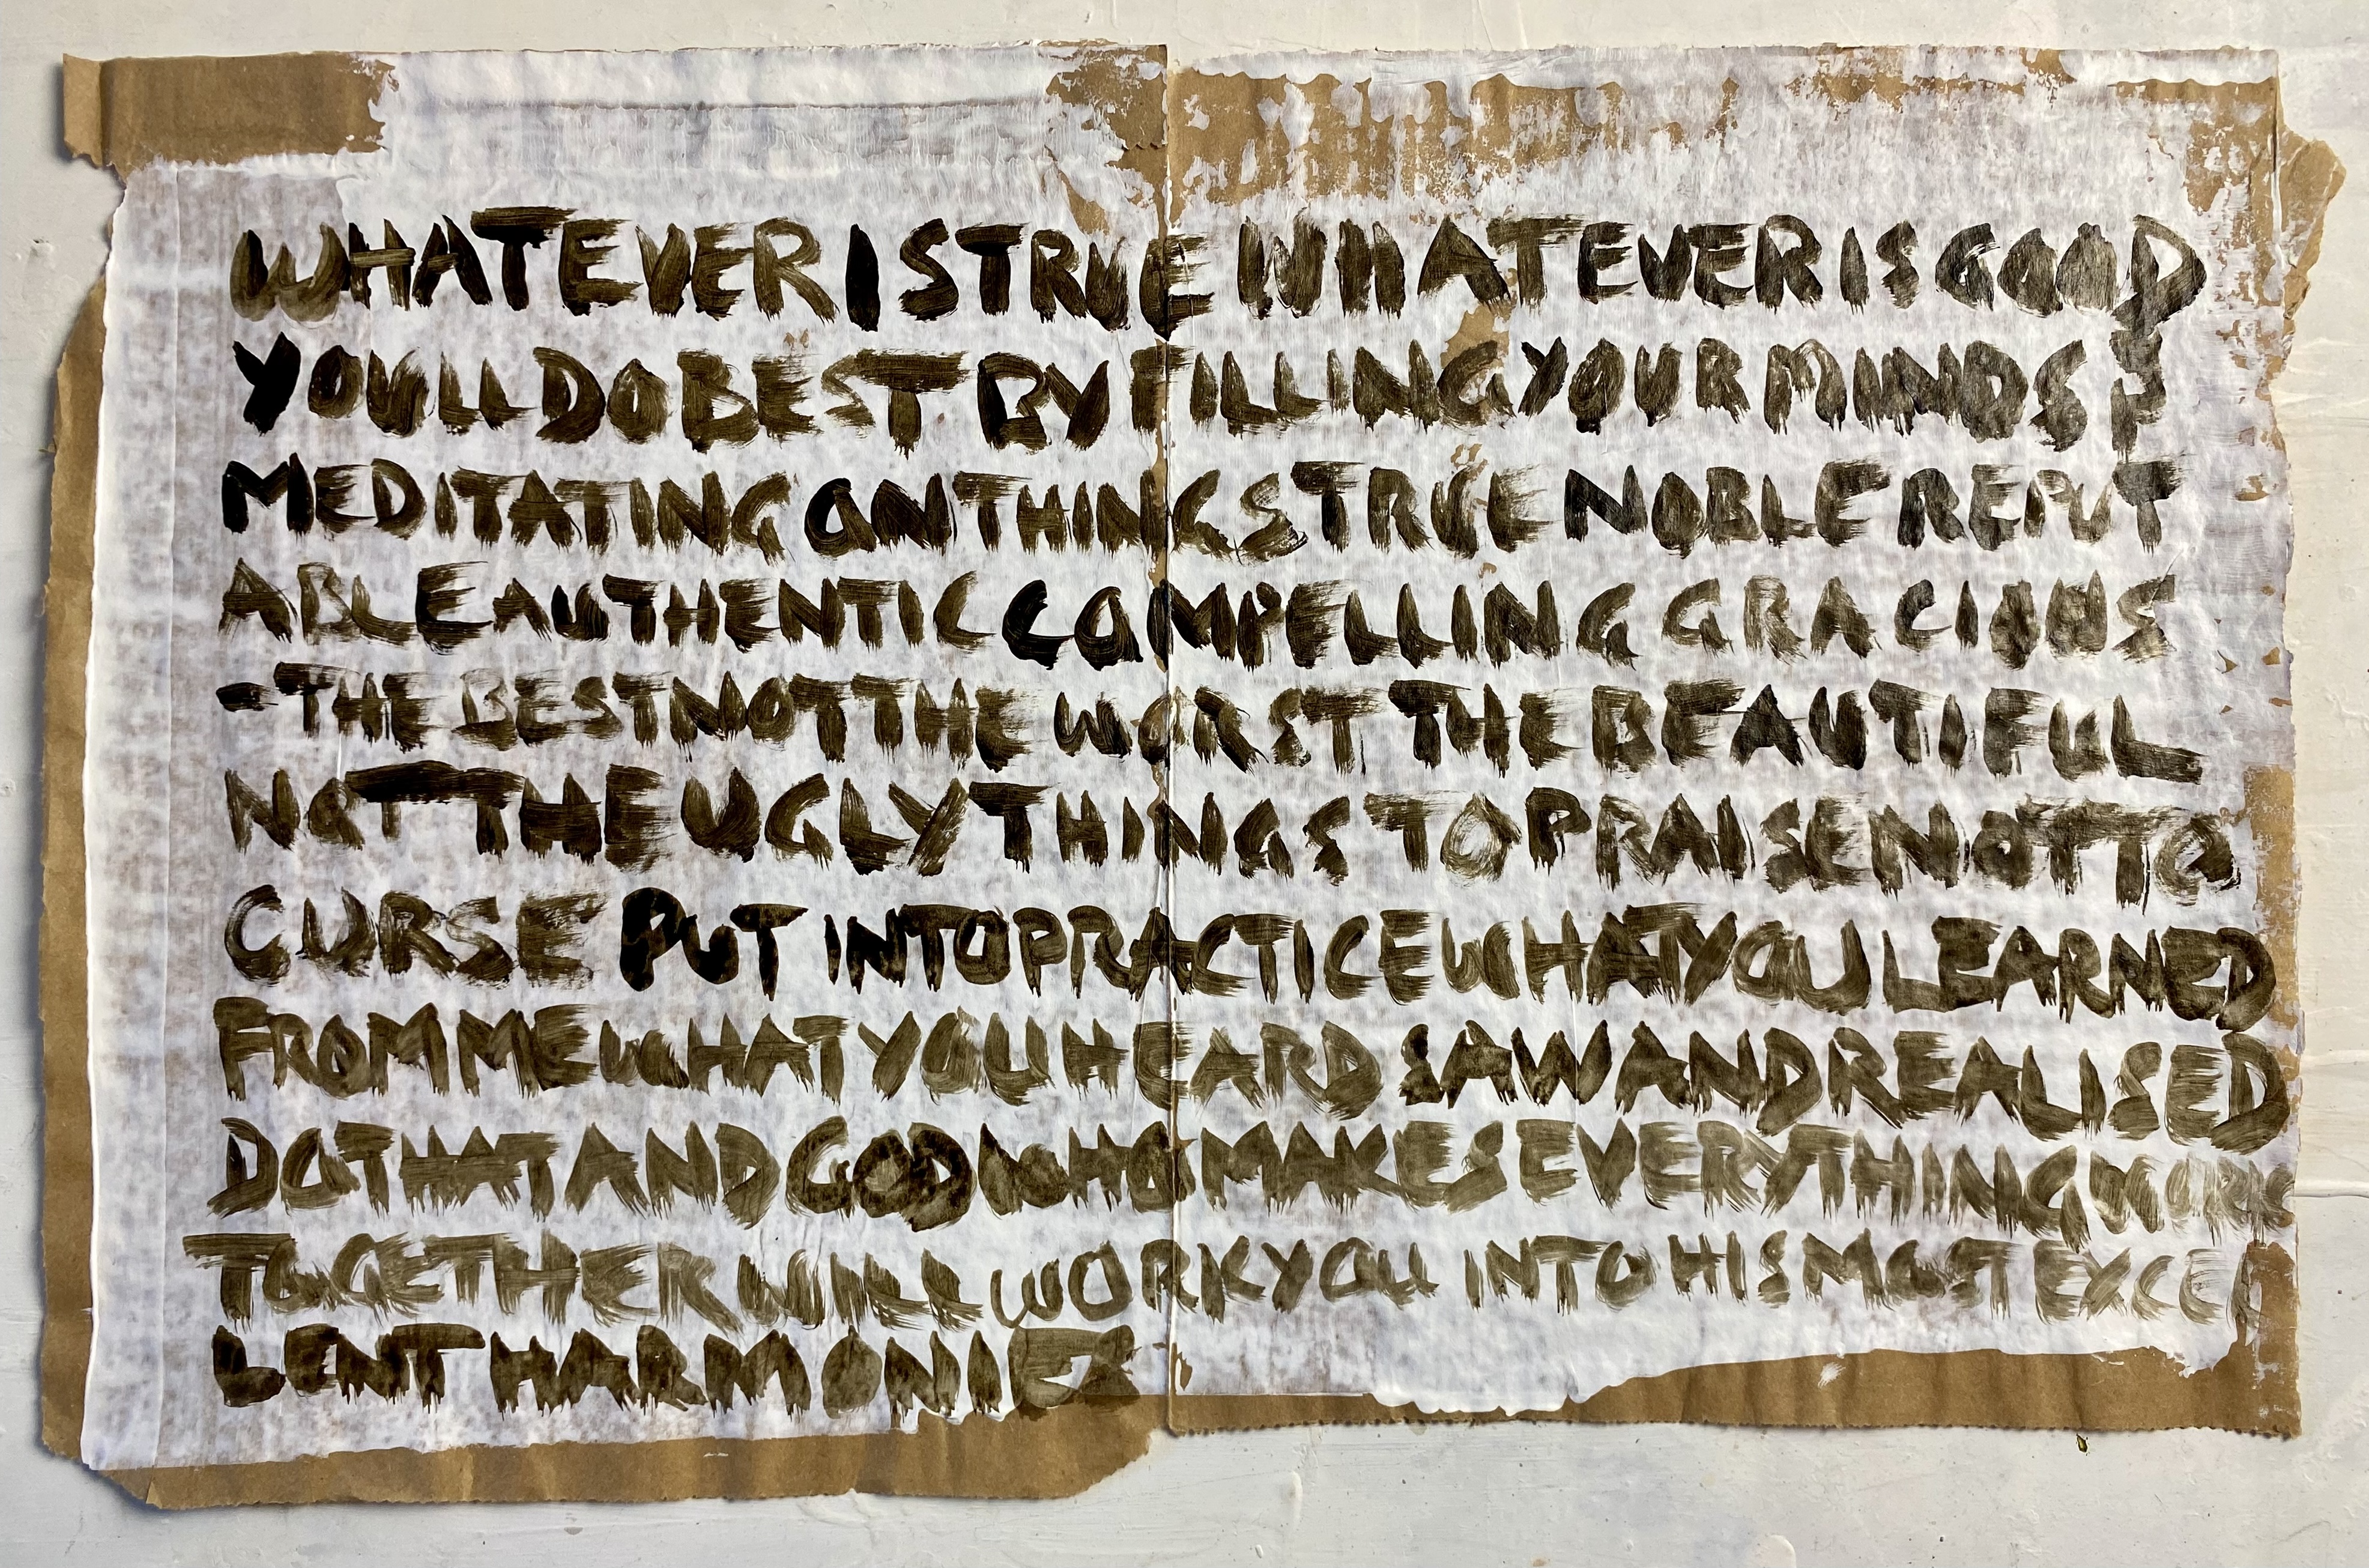 WHATEVER IS TRUE WHATEVER IS GOOD
YOULL DO BEST BY FILLING YOUR MINDS &
MEDITATING ON THINGS TRUE NOBLE REPUT
ABLE AUTHENTIC COMPELLING GRACIOUS
- THE BEST NOT THE WORST THE BEAUTIFUL
NOT THE UGLY THINGS TO PRAISE NOT TO
CURSE PUT INTO PRACTICE WHAT YOU LEARNED
FROM ME WHAT YOU HEARD SAW AND REALISED
DO THAT AND GOD WHO MAKES EVERYTHING WORK
TOGETHER WILL WORK YOU INTO HIS MOST EXCEL
LENT HARMONIES